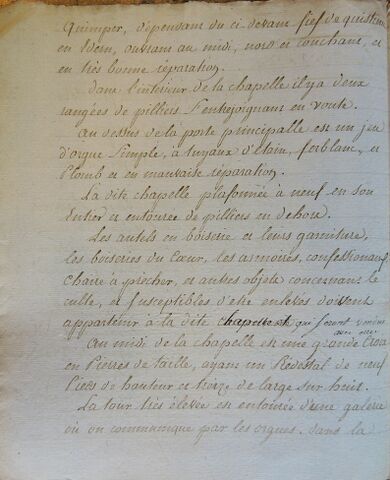 Quimper, dependant du ci devant fief de quistin
en Wern, ouvrant au midi, nord et couchant, et
en très bonne réparation.
Dans l'interieur de la chapelle il y a deux
rangées de pilliers S'entrejoignant en voute.
Au dessus de la porte principalle est un jeu
d'orgue Simple, à tuyaux d'étain, ferblanc, et
Plomb et en mauvaise réparation.
La dite chapelle plafonnée à neuf en son
Entier et entourée de pilliers en dehors.
Les autels en boiserie et leurs garniture,
les boiseries du Cœur, les armoires, confessionaux
Chaire à precher, et autres objets concernant le
culte, et susceptibles d'etre enlevés doivent
appartenir à la dite qui seront vendus
avec elle
Au midi de la chapelle est une grande Croix
en Pierres de taille, ayant un Piedestal de neuf
Pieds de hauteur et treize de large sur huit.
La tour très élevée est entourée d'une galerie
où on communique par les orgues. dans la